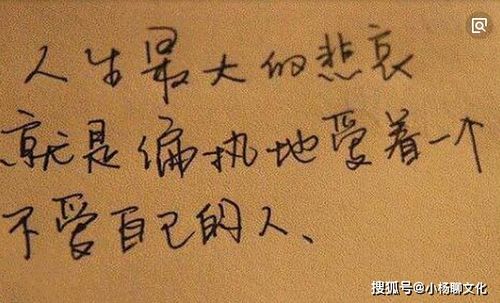 人生最大的悲哀
就是偏执地爱着一个
不爱自己的人、
搜狐号@小杨聊文化